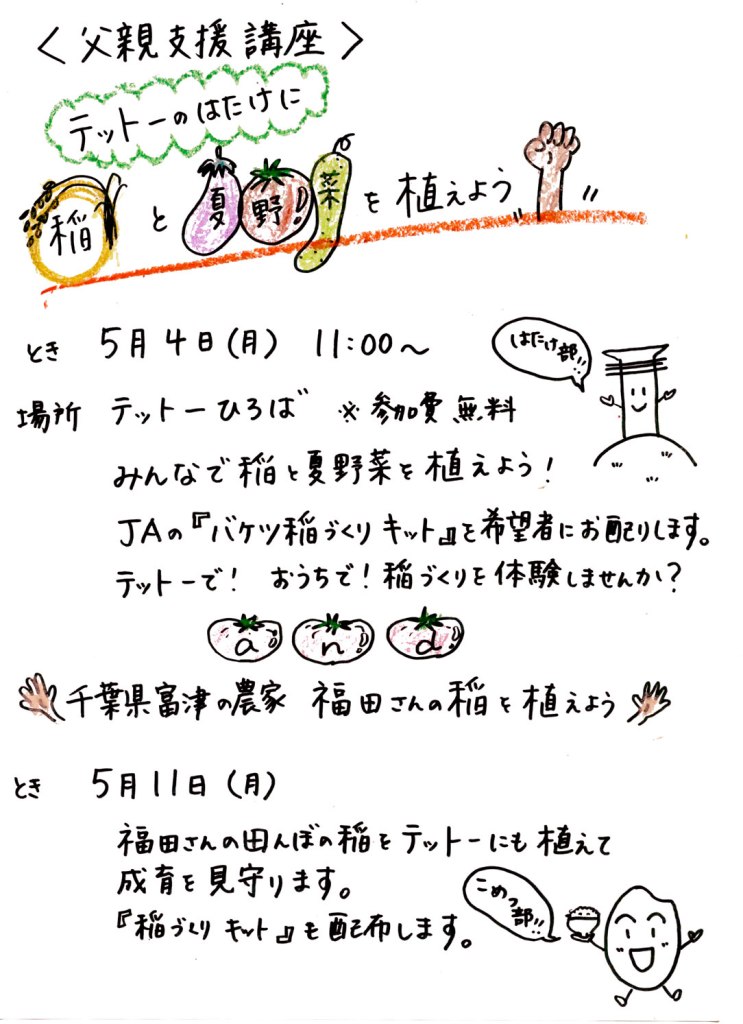 ＜父親支援講座＞
テットーのはたけに
稲と夏野！菜を植えよう
とき 5月4日(月) 11:00〜
はたけ部!!
場所 テットーひろば ※参加費無料
みんなで稲と夏野菜を植えよう！
JAの『バケツ稲づくりキット』を希望者にお配りします。
テットーで！ おうちで！稲づくりを体験しませんか？
and
千葉県富津の農家 福田さんの稲を植えよう
とき 5月11日(月)
福田さんの田んぼの稲をテットーにも植えて
成育を見守ります。
こめつ部!!
『稲づくりキット』も配布します。